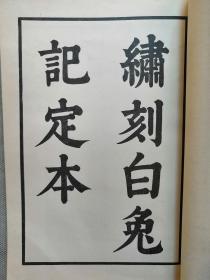 繡刻白兔
記定本